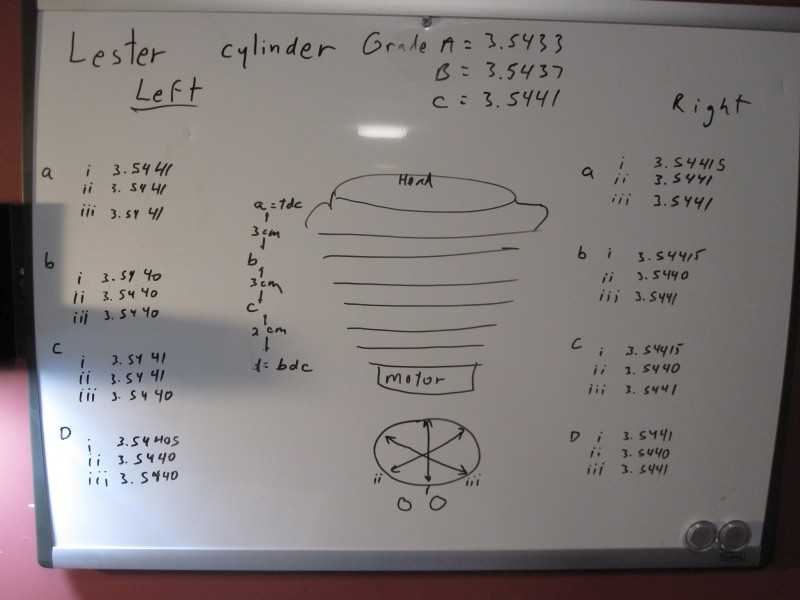 Lester cylinder Grade A = 3.5433
B = 3.5437
C = 3.5441
Left
Right
a i 3.5441
ii 3.5441
iii 3.5441
b
i 3.5440
ii 3.5440
iii 3.5440
C
i 3.5441
ii 3.5441
iii 3.5440
D
i 3.54405
ii 3.5440
iii 3.5440
Head
a = tdc
3 cm
b
3 cm
C
2 cm
d = bdc
motor
i
ii
iii
a i 3.54415
ii 3.5441
iii 3.5441
b i 3.54415
ii 3.5440
iii 3.5441
C i 3.54415
ii 3.5440
iii 3.5441
D i 3.5441
ii 3.5440
iii 3.5441